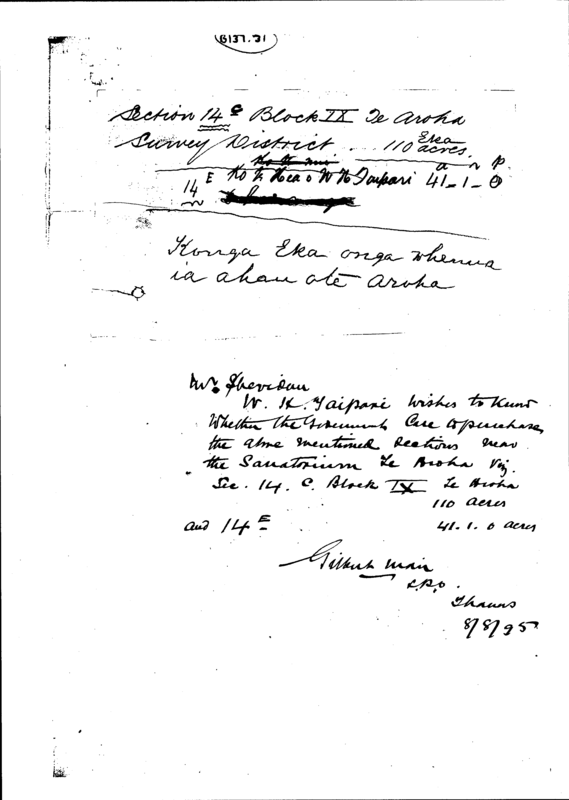 B137.31
Section 14 C Block IX Te Aroha
Survey District . . 110 Eka acres.
a r p.
14 E W H Taipari 41-1-0
Konga Eka onga whenua
ia ahau ote Aroha
Mr. Sheridan
W. H. Taipari wishes to know
Whether the Government Care to purchase
the above mentioned Sections near
the Sanatorium Te Aroha Viz.
Sec. 14. C. Block IX Te Aroha
110 acres
and 14 E 41.1.0 acres
Gilbert Mair
L.P.O.
Thames
8/8/95